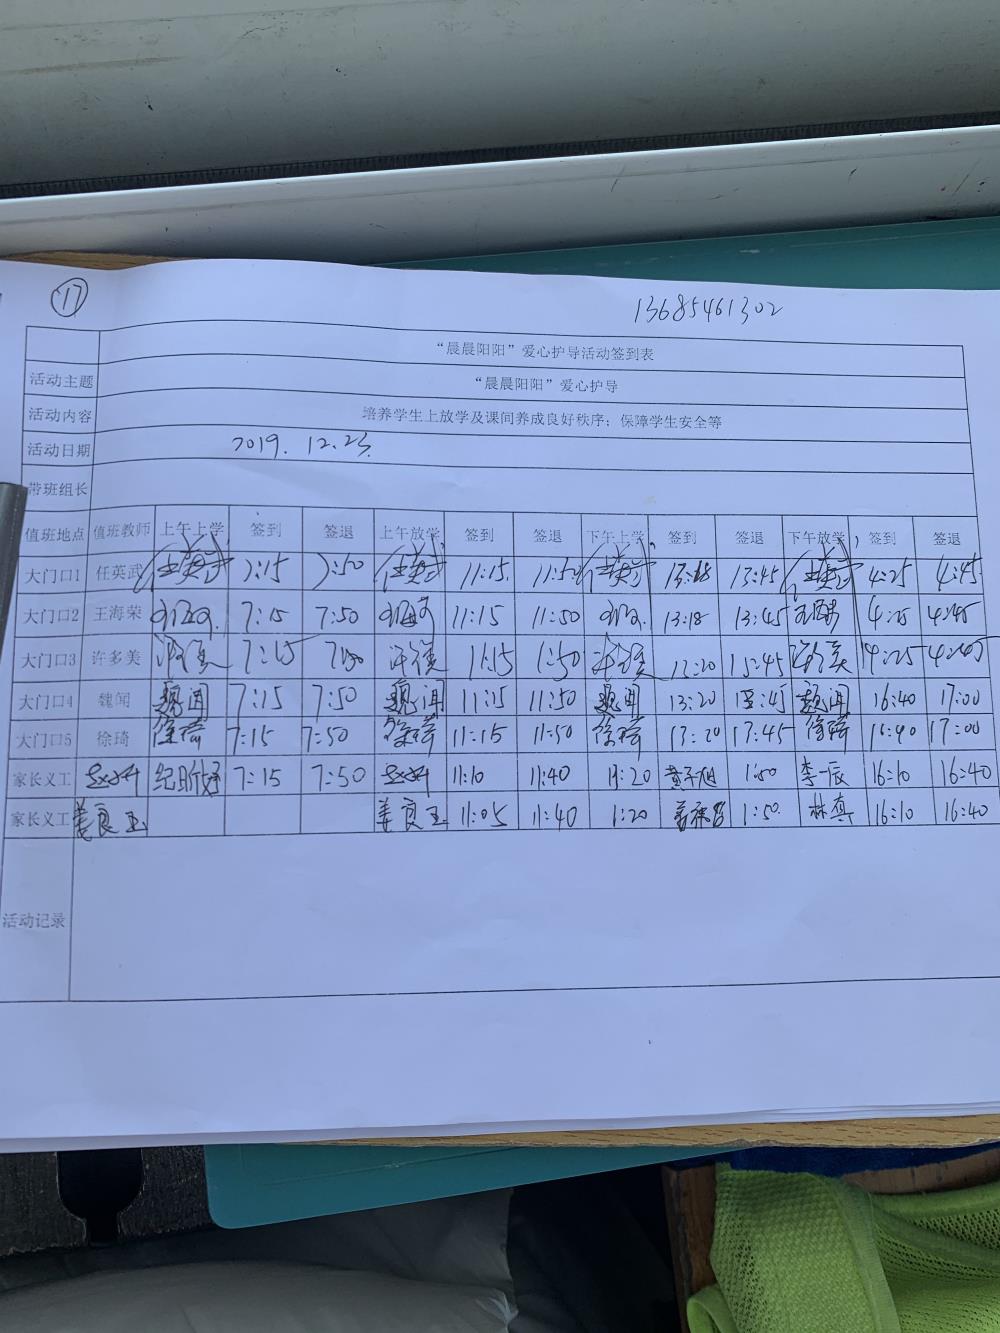 17
13685461302
“晨晨阳阳”爱心护导活动签到表
活动主题 “晨晨阳阳”爱心护导
活动内容 培养学生上放学及课间养成良好秩序；保障学生安全等
活动日期 2019.12.23.
带班组长
值班地点 值班教师 上午上学 签到 签退 上午放学 签到 签退 下午上学 签到 签退 下午放学 签到 签退
大门口1 任英武 任英武 7:15 7:50 任英武 11:15 11:50 任英武 13:18 13:45 任英武 4:25 4:45
大门口2 王海荣 7:15 7:50 11:15 11:50 13:18 13:45 4:25 4:45
大门口3 许多美 7:15 7:50 11:15 1:50 13:20 13:45 4:25 4:45
大门口4 魏闻 魏闻 7:15 7:50 魏闻 11:15 11:50 魏闻 13:20 13:45 魏闻 16:40 17:00
大门口5 徐琦 徐琦 7:15 7:50 徐琦 11:15 11:50 徐琦 13:20 17:45 徐琦 16:40 17:00
家长义工 7:15 7:50 11:10 11:40 1:20 1:50 李一辰 16:10 16:40
家长义工 姜良玉 姜良玉 11:05 11:40 1:20 1:50 林真 16:10 16:40
活动记录